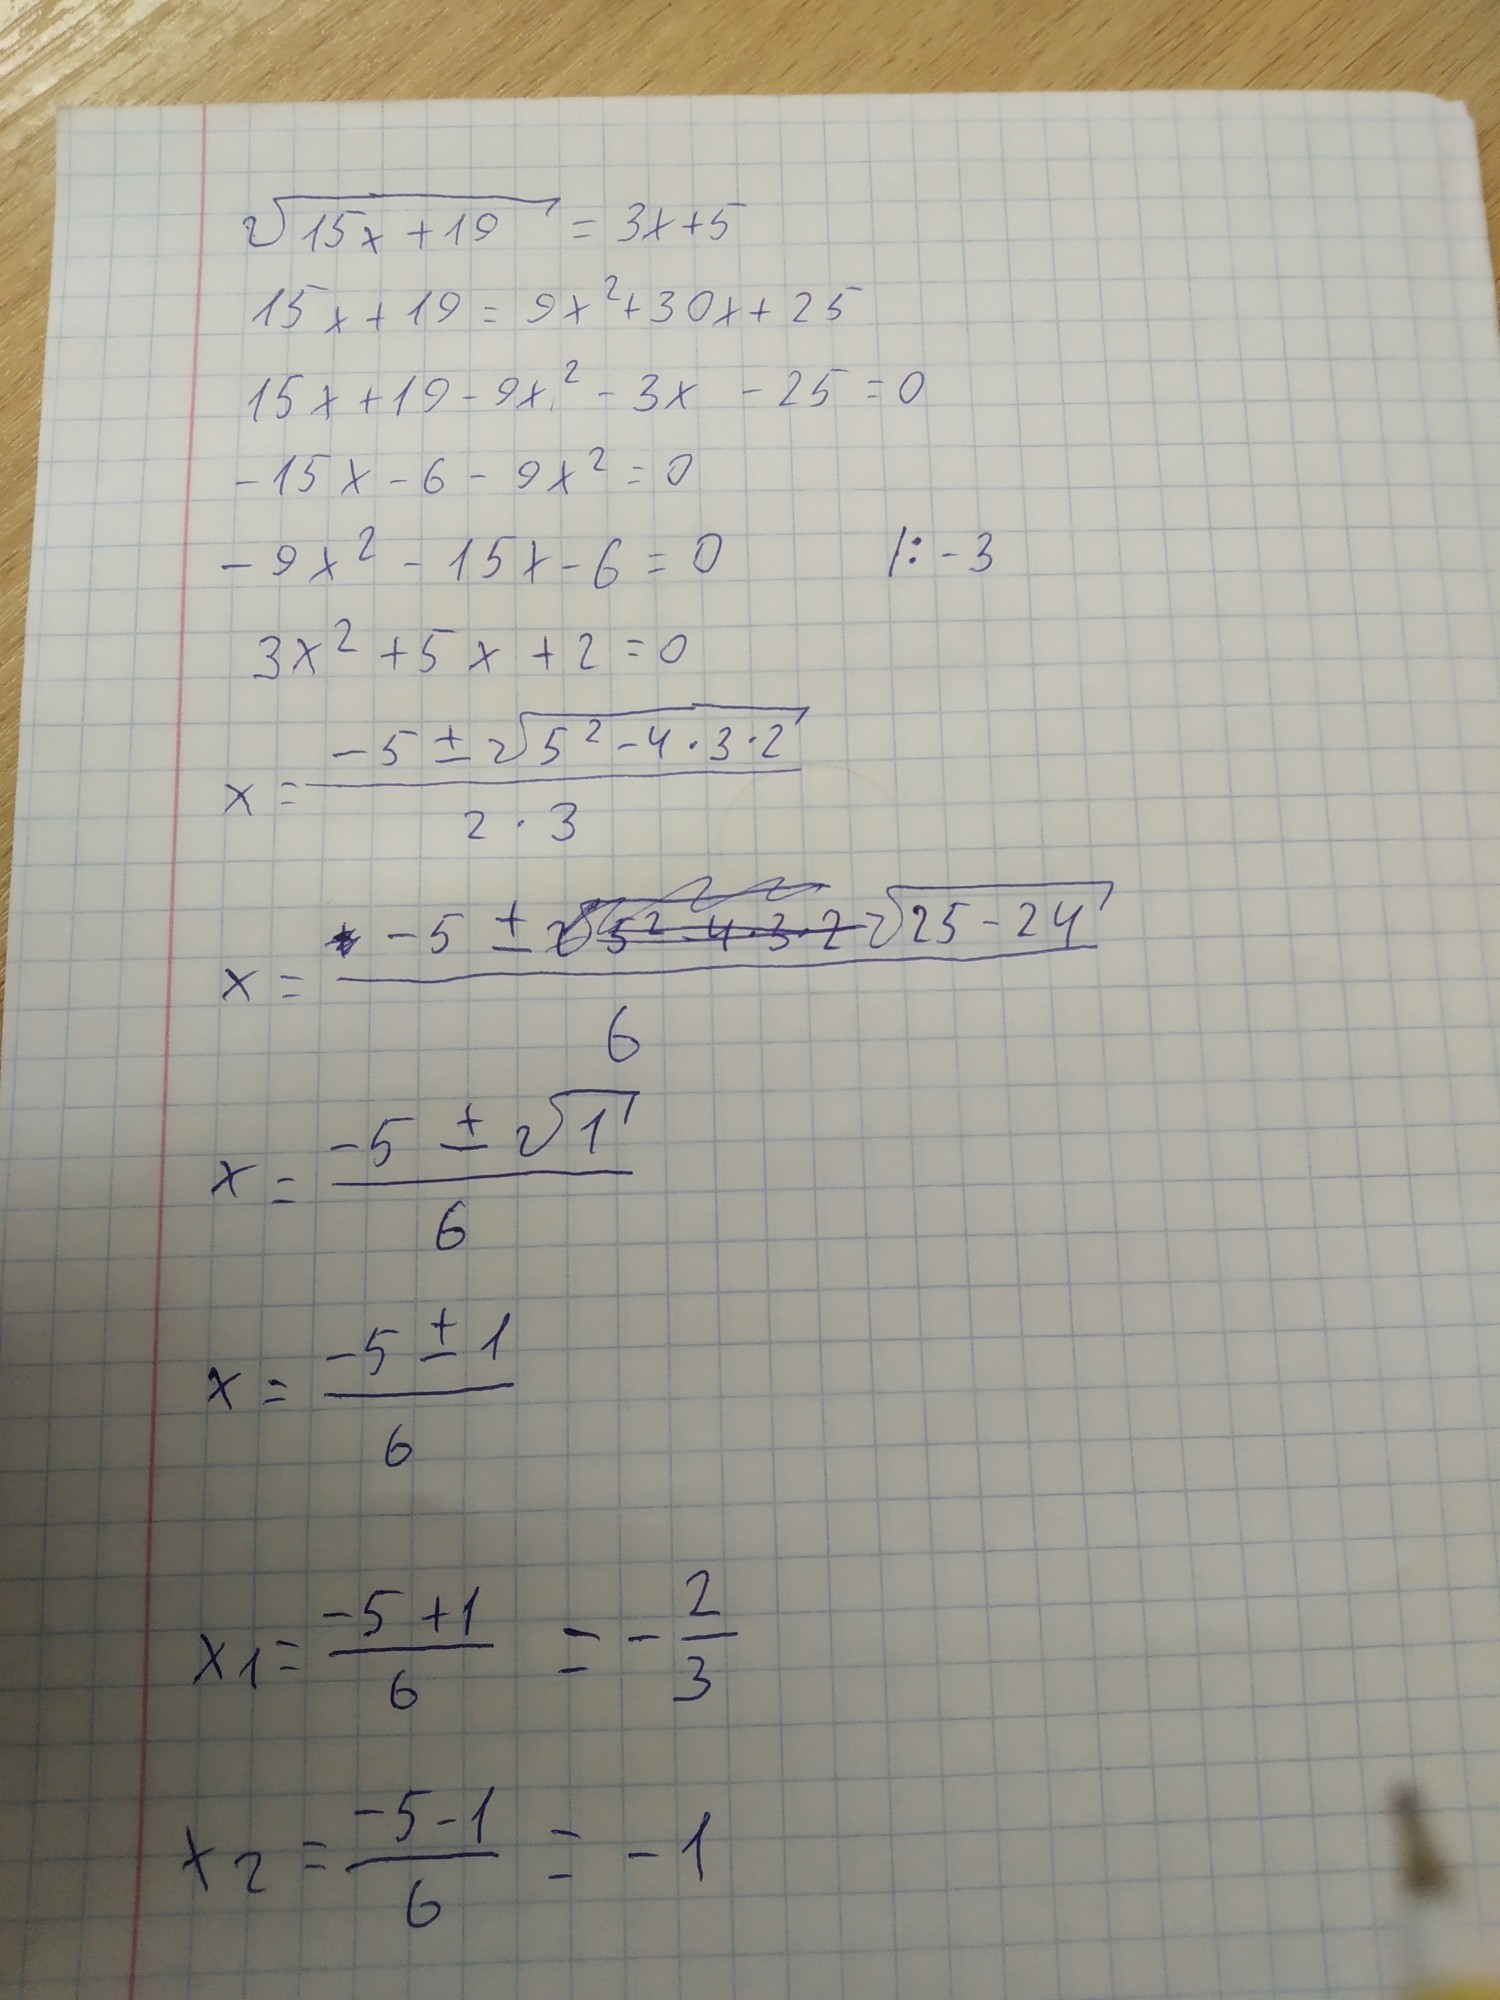 √(15x+19) = 3x+5
15x+19 = 9x²+30x+25
15x+19-9x²-3x -25=0
-15x-6-9x²=0
-9x²-15x-6=0 |:-3
3x²+5x+2=0
x = (-5 ± √(5²-4·3·2)) / (2·3)
x = (-5 ± √(5²-4·3·2) √(25-24)) / 6
x = (-5 ± √1) / 6
x = (-5 ± 1) / 6
x1 = (-5+1)/6 = -2/3
x2 = (-5-1)/6 = -1